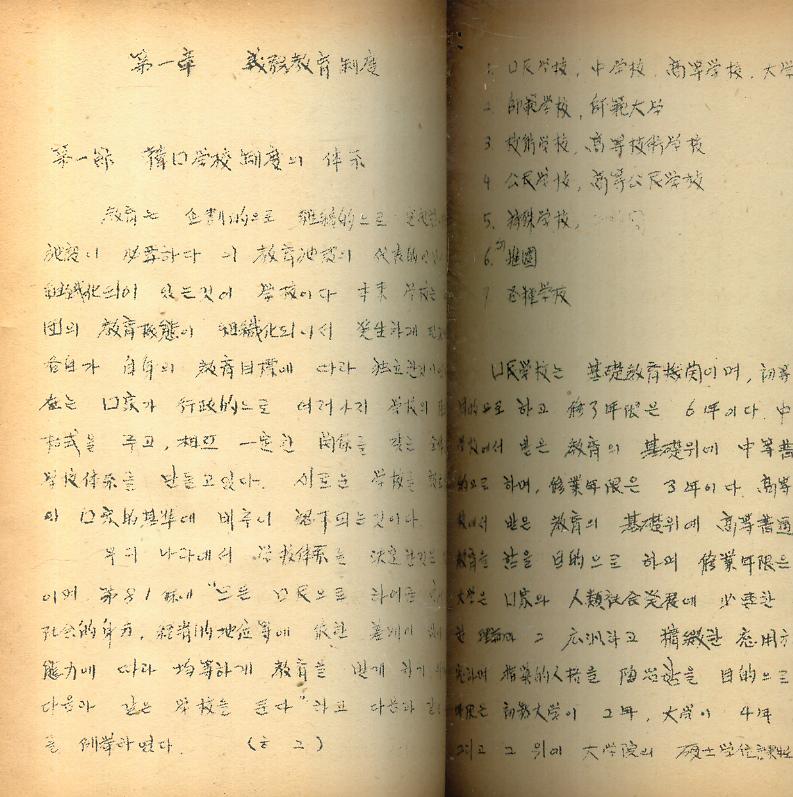 第一章 義務教育制度
第一節 韓口学校制度의 体系
教育은 企劃的으로 組織的으로
施設이 必要하다 이 教育施設의 代表的
組織化되어 있는것이 学校이다 本来 学校는
団의 教育機態이 組織化되어서 発生하게
各自가 自身의 教育目標에 따라 独立한
在는 口家가 行政的으로 여러가지 学校의
를 주고, 相互 一定한 関係를 갖는
学校体系를 만들고있다. 学校를
의 口家的基準에 비추어 되는것이다.
우리 나라에서 学校体系를 決定한것은
이며 第81條에 "모든 口民으로 하여금
社会的身分, 経済的地位等에 依한 差別이
能力에 따라 均等하게 教育을 받게 하기
다음과 같은 学校를 둔다"하고 다음과
를 例挙하였다. (注2)
1. 口民学校, 中学校, 高等学校, 大学
2. 師範学校, 師範大学
3 技術学校, 高等技術学校
4 公民学校, 高等公民学校
5. 特殊学校,
6. 稚園
7 各種学校
口民学校는 基礎教育機関이며, 初等
目的으로 하고 修了年限은 6年이다. 中
学校에서 받은 教育의 基礎위에 中等普
的으로 하며, 修業年限은 3年이다. 高等
校에서 받은 教育의 基礎위에 高等普通
教育을 함을 目的으로 하며 修業年限은
大学은 口家와 人類社会発展에 必要한
한 理論과 그 広汎하고 精緻한 応用方
究하며 指導的人格을 陶冶함을 目的으로
年限은 初級大学이 2年, 大学이 4年
그리고 그 위에 大学院의 碩士学位課程